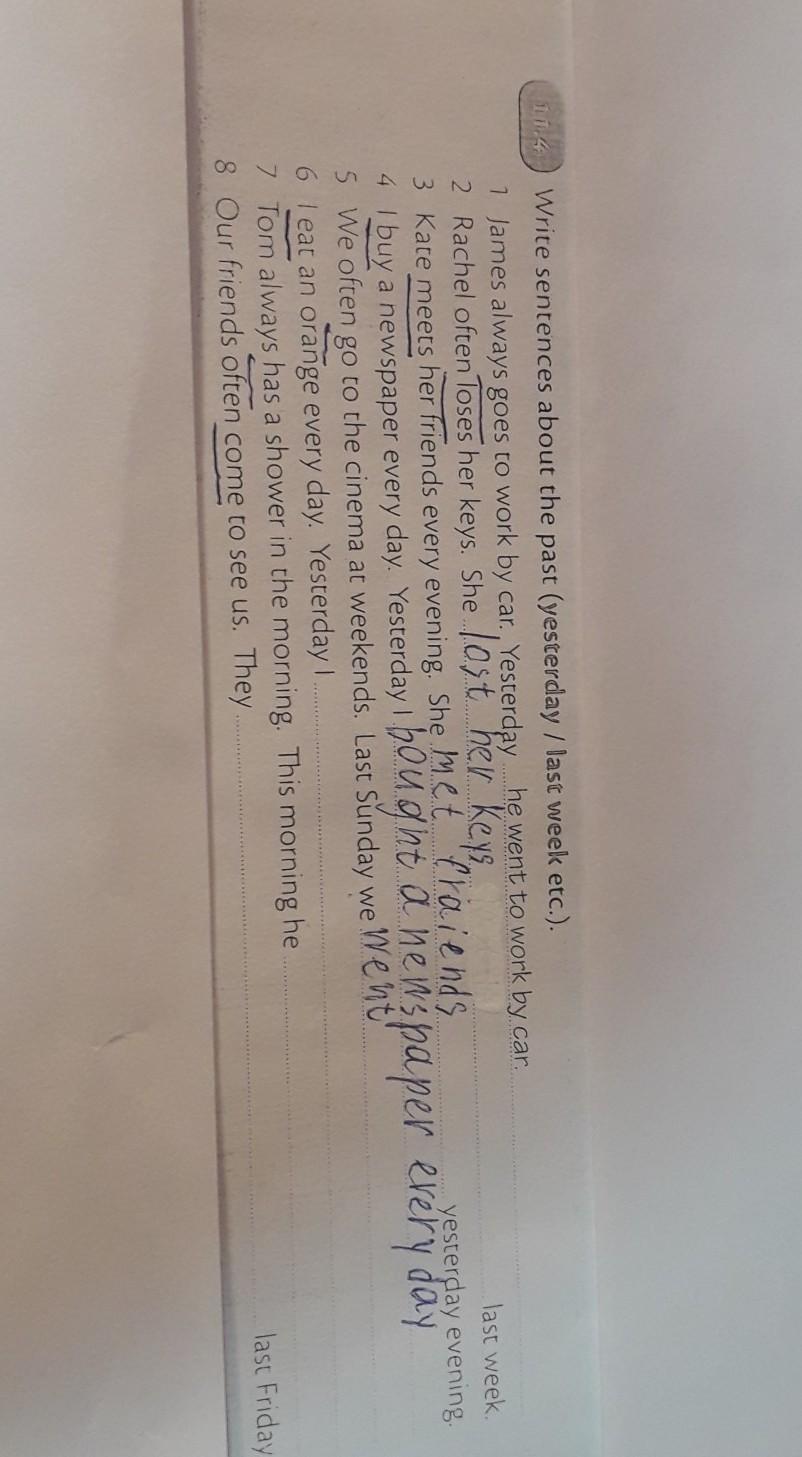 11.4 Write sentences about the past (yesterday / last week etc.).
1 James always goes to work by car. Yesterday he went to work by car.
2 Rachel often loses her keys. She lost her keys last week.
3 Kate meets her friends every evening. She met fraiends yesterday evening.
4 I buy a newspaper every day. Yesterday I bought a newspaper every day
5 We often go to the cinema at weekends. Last Sunday we went
6 I eat an orange every day. Yesterday I
7 Tom always has a shower in the morning. This morning he
8 Our friends often come to see us. They last Friday